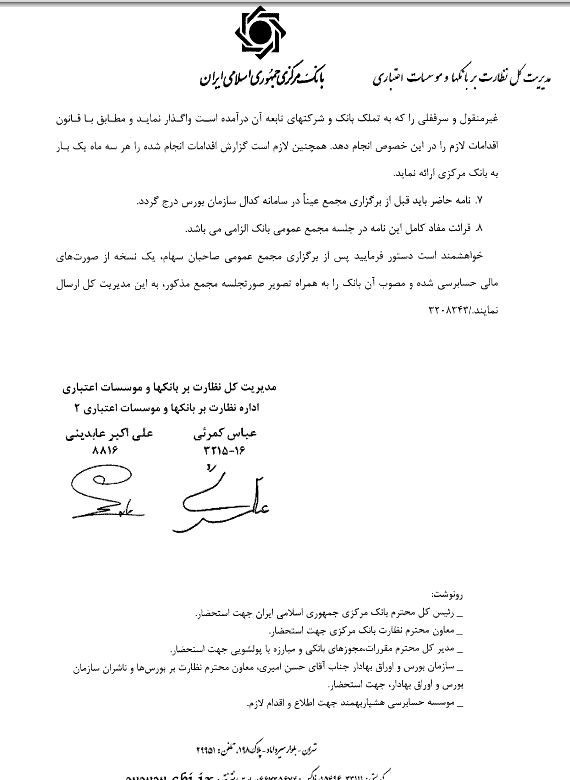 بانک مرکزی جمهوری اسلامی ایران
مدیریت کل نظارت بر بانکها و موسسات اعتباری
غیرمنقول و سرقفلی را که به تملک بانک و شرکتهای تابعه آن درآمده است واگذار نماید و مطابق با قانون
اقدامات لازم را در این خصوص انجام دهد. همچنین لازم است گزارش اقدامات انجام شده را هر سه ماه یک بار
به بانک مرکزی ارائه نماید.
۷. نامه حاضر باید قبل از برگزاری مجمع عیناً در سامانه کدال سازمان بورس درج گردد.
۸. قرائت مفاد کامل این نامه در جلسه مجمع عمومی بانک الزامی می باشد.
خواهشمند است دستور فرمایید پس از برگزاری مجمع عمومی صاحبان سهام، یک نسخه از صورت‌های
مالی حسابرسی شده و مصوب آن بانک را به همراه تصویر صورتجلسه مجمع مذکور، به این مدیریت کل ارسال
نمایند./۳۲۰۸۳۴۳
مدیریت کل نظارت بر بانکها و موسسات اعتباری
اداره نظارت بر بانکها و موسسات اعتباری ۲
عباس کمرئی علی اکبر عابدینی
۳۲۱۵-۱۶ ۸۸۱۶
رونوشت:
_ رئیس کل محترم بانک مرکزی جمهوری اسلامی ایران جهت استحضار.
_ معاون محترم نظارت بانک مرکزی جهت استحضار.
_ مدیر کل محترم مقررات،مجوزهای بانکی و مبارزه با پولشویی جهت استحضار.
_ سازمان بورس و اوراق بهادار جناب آقای حسن امیری، معاون محترم نظارت بر بورس‌ها و ناشران سازمان
بورس و اوراق بهادار، جهت استحضار.
_ موسسه حسابرسی هشیاربهمند جهت اطلاع و اقدام لازم.
تهران - بلوار میرداماد - پلاک ۱۹۸، تلفن: ۲۹۹۵۱